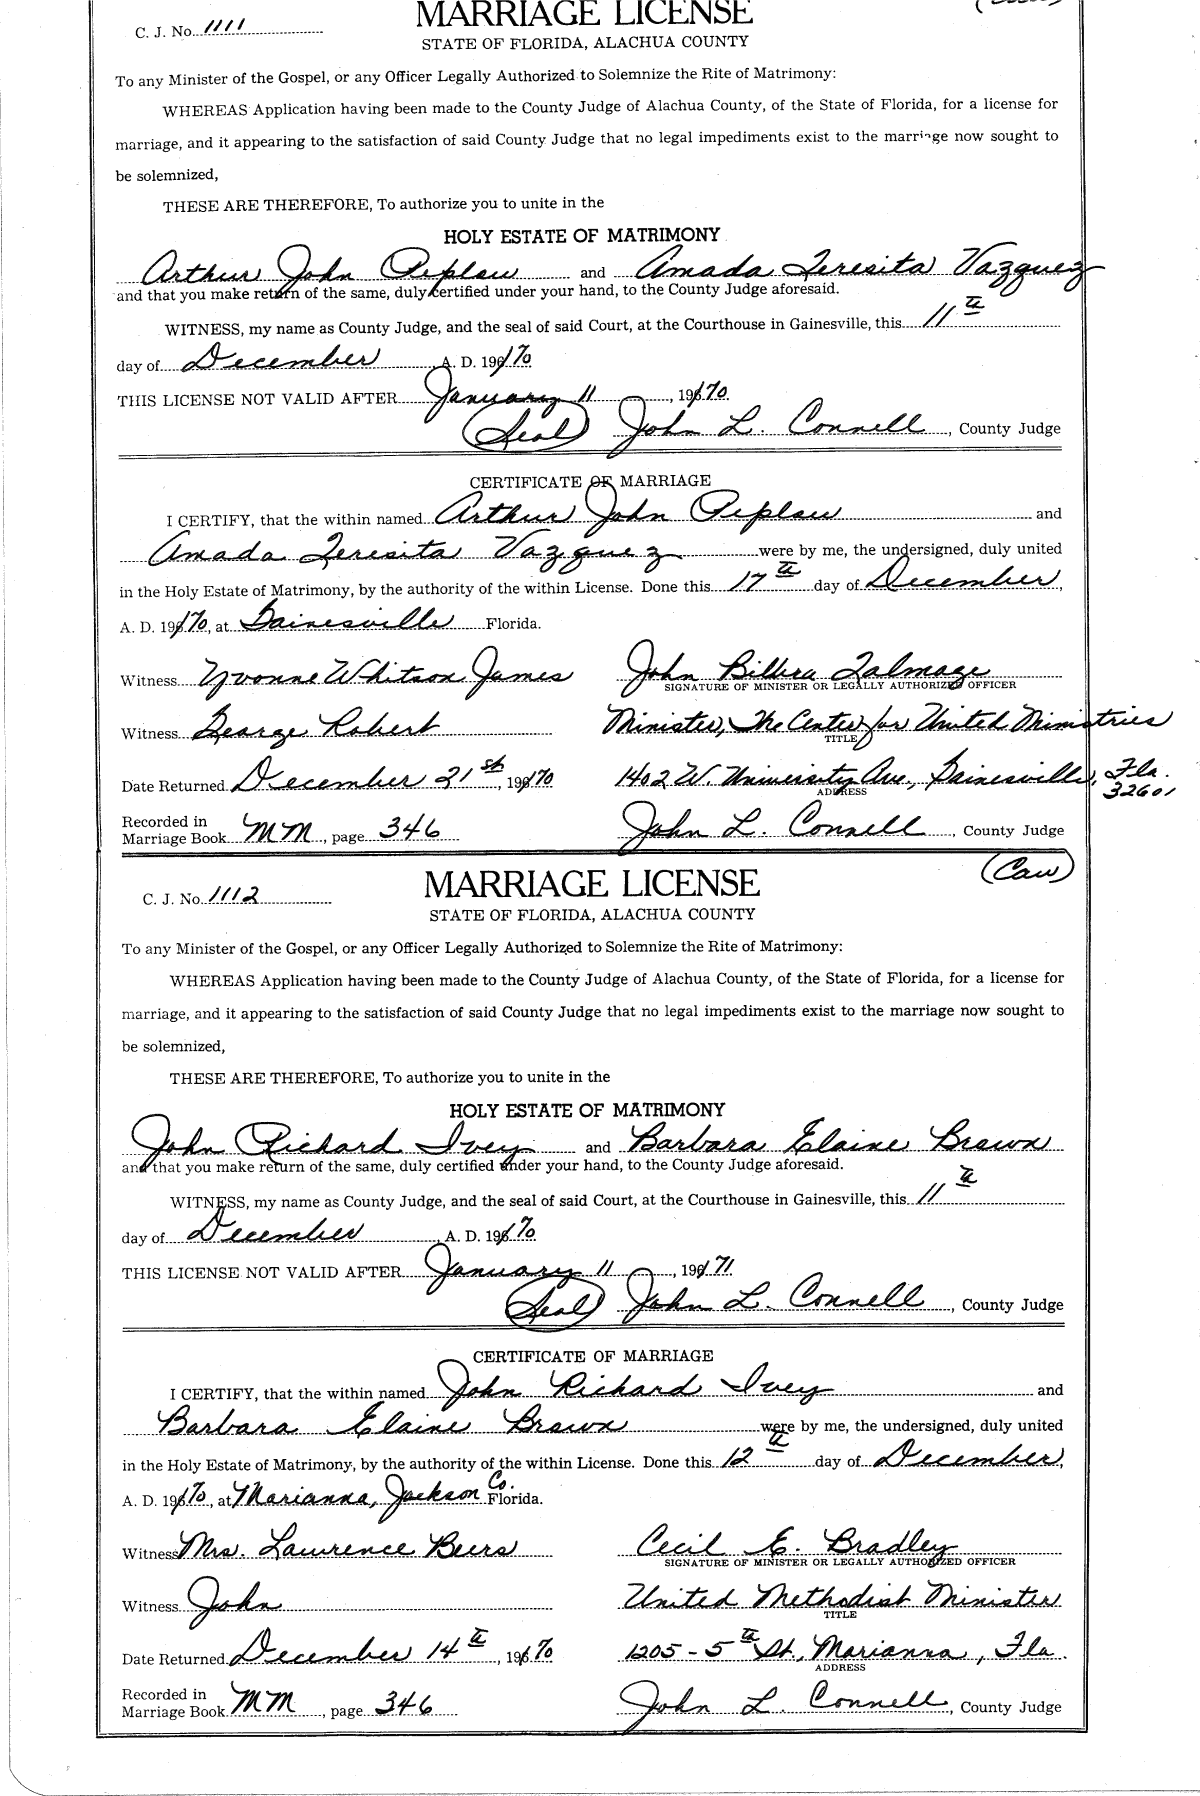 MARRIAGE LICENSE
C. J. No. 1111
STATE OF FLORIDA, ALACHUA COUNTY
To any Minister of the Gospel, or any Officer Legally Authorized to Solemnize the Rite of Matrimony:
WHEREAS Application having been made to the County Judge of Alachua County, of the State of Florida, for a license for
marriage, and it appearing to the satisfaction of said County Judge that no legal impediments exist to the marriage now sought to
be solemnized,
THESE ARE THEREFORE, To authorize you to unite in the
HOLY ESTATE OF MATRIMONY
Arthur John Peplau and Amada Teresita Vazquez
and that you make return of the same, duly certified under your hand, to the County Judge aforesaid.
WITNESS, my name as County Judge, and the seal of said Court, at the Courthouse in Gainesville, this 11th
day of December A. D. 1970
THIS LICENSE NOT VALID AFTER January 11, 1970.
(Seal) John L. Connell, County Judge
CERTIFICATE OF MARRIAGE
I CERTIFY, that the within named Arthur John Peplau and
Amada Teresita Vazquez were by me, the undersigned, duly united
in the Holy Estate of Matrimony, by the authority of the within License. Done this 17th day of December,
A. D. 1970, at Gainesville Florida.
Witness Yvonne Whitson James John Talmage
SIGNATURE OF MINISTER OR LEGALLY AUTHORIZED OFFICER
Witness George Robert Minister, The Center for United Ministries
TITLE
Date Returned December 21st, 1970 1402 W. University Ave., Gainesville, Fla. 32601
ADDRESS
Recorded in
Marriage Book MM, page 346 John L. Connell, County Judge
(Caw)
MARRIAGE LICENSE
C. J. No. 1112
STATE OF FLORIDA, ALACHUA COUNTY
To any Minister of the Gospel, or any Officer Legally Authorized to Solemnize the Rite of Matrimony:
WHEREAS Application having been made to the County Judge of Alachua County, of the State of Florida, for a license for
marriage, and it appearing to the satisfaction of said County Judge that no legal impediments exist to the marriage now sought to
be solemnized,
THESE ARE THEREFORE, To authorize you to unite in the
HOLY ESTATE OF MATRIMONY
John Richard Ivey and Barbara Elaine Brown
and that you make return of the same, duly certified under your hand, to the County Judge aforesaid.
WITNESS, my name as County Judge, and the seal of said Court, at the Courthouse in Gainesville, this 11th
day of December, A. D. 1970
THIS LICENSE NOT VALID AFTER January 11, 1971
(Seal) John L. Connell, County Judge
CERTIFICATE OF MARRIAGE
I CERTIFY, that the within named John Richard Ivey and
Barbara Elaine Brown were by me, the undersigned, duly united
in the Holy Estate of Matrimony, by the authority of the within License. Done this 12th day of December,
A. D. 1970, at Marianna, Jackson Co. Florida.
Witness Mrs. Lawrence Beers Cecil E. Bradley
SIGNATURE OF MINISTER OR LEGALLY AUTHORIZED OFFICER
Witness John United Methodist Minister
TITLE
Date Returned December 14th, 1970 1205 - 5th St., Marianna, Fla.
ADDRESS
Recorded in
Marriage Book MM, page 346 John L. Connell, County Judge